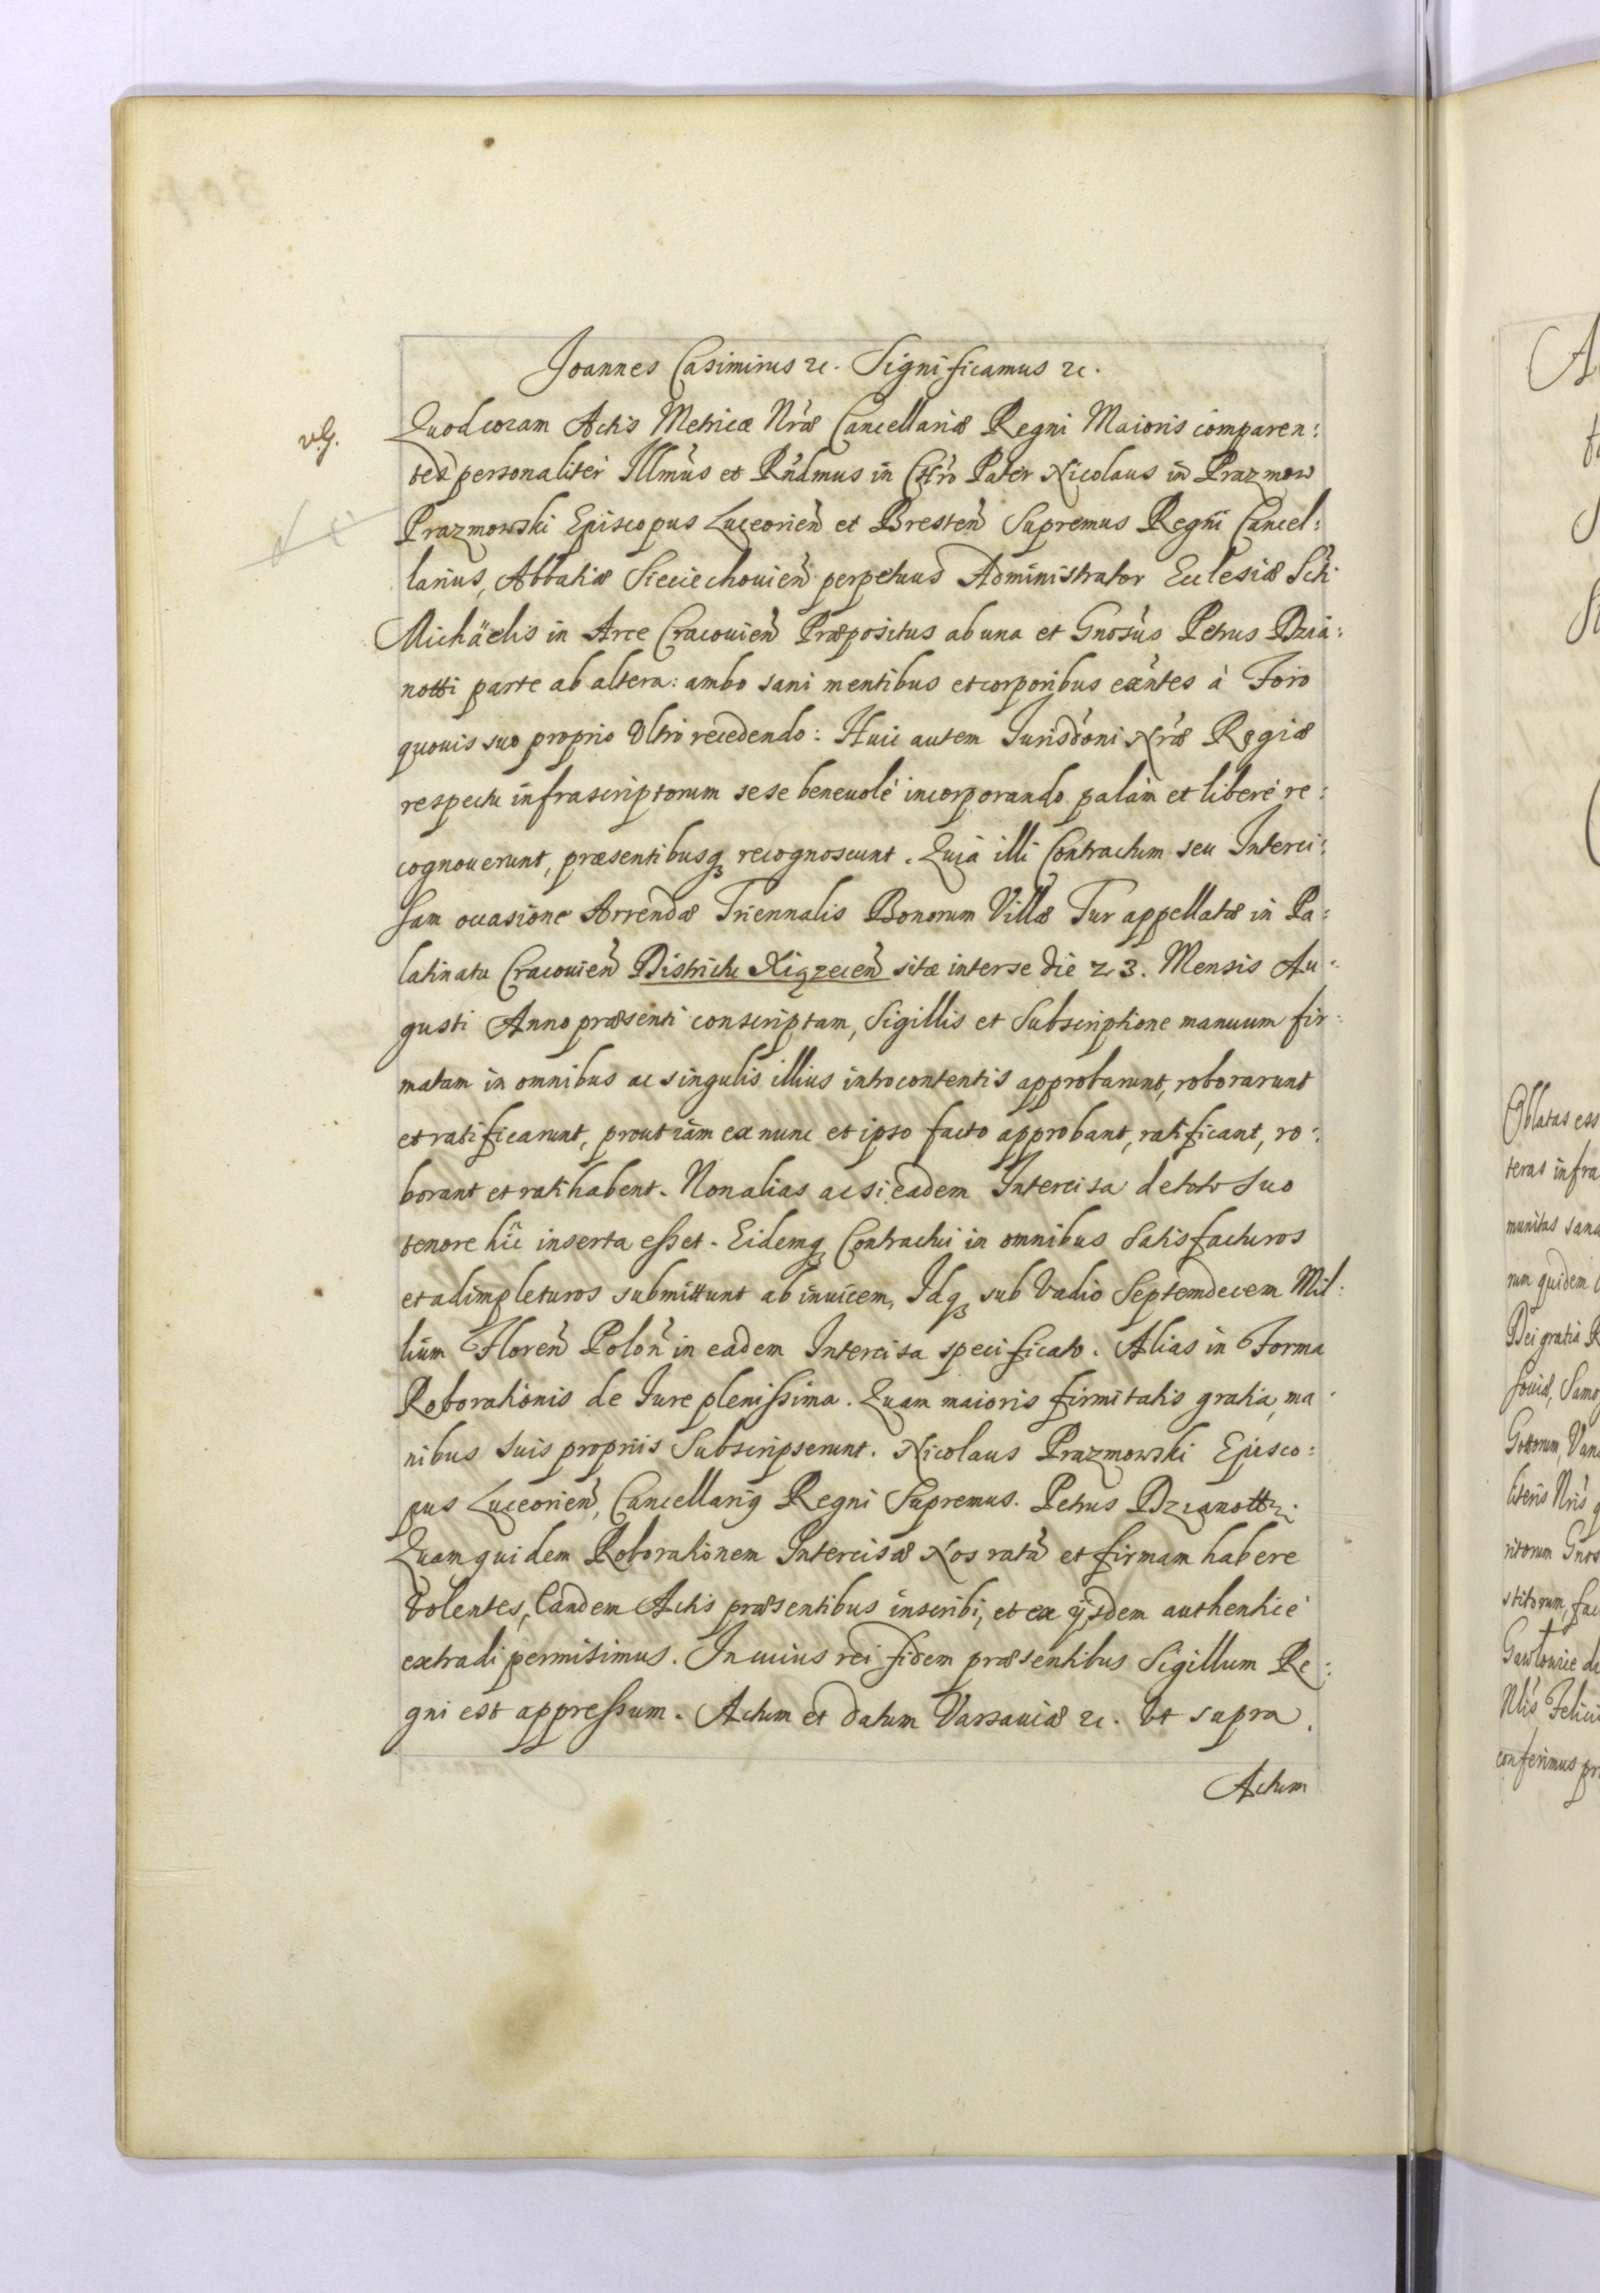 Joannes Casimirus &c. Significamus &c.
v.g.
Quod coram Actis Metricæ Nr̃æ Cancellariæ Regni Maioris comparen:
tes personaliter Illm̃us et Rñdmus in Chr̃o Pater Nicolaus in Prazmow
Prazmowski Episcopus Luceorien̄ et Bresten̄ Supremus Regni Cancel:
larius, Abbatiæ Sieciechouien̄ perpetuus Administrator Ecclesiæ Scti
Michäelis in Arce Cracouien̄ Præpositus ab una et Gnosũs Petrus Dzia:
notti parte ab altera: ambo sani mentibus et corporibus exñtes à Foro
quouis suo proprio Vltro recedendo: Huic autem Jurisdõni Nr̃æ Regiæ
respectu infrascriptorum sese beneuolè incorporando palàm et liberè re:
cognouerunt, præsentibusq₃ recognoscunt. Quia illi Contractum seu Interci:
sam occasione Arrendæ Triennalis Bonorum Villæ Tur appellatæ in Pa:
latinatu Cracouien̄ Districtu Xiązecen̄ sitæ inter se die 23. Mensis Au:
gusti Anno præsenti conscriptam, Sigillis et Subscriptione manuum fir:
matam in omnibus ac singulis illius introcontentis approbarunt, roborarunt
et ratificarunt, prout iàm ex nunc et ipso facto approbant, ratificant, ro:
borant et ratihabent. Non alias ac si eadem Intercisa de toto suo
tenore hîc inserta esset. Eidemq₃ Contractui in omnibus satisfacturos
et adimpleturos submittunt ab inuicem, Idq₃ sub Vadio Septemdecem Mil:
lium Floren̄ Polon̄ in eadem Intercisa specificato. Alias in Forma
Roborationis de Jure plenissima. Quam maioris firmitatis gratia, ma:
nibus suis propriis Subscripserunt. Nicolaus Prazmowski Episco:
pus Luceorien̄, Cancellariꝰ Regni Supremus. Petrus Dzianotti.
Quam quidem Roborationem Intercisæ Nos ratã et firmam habere
Volentes, Eandem Actis præsentibus inscribi, et ex ijsdem authenticè
extradi permisimus. In cuius rei fidem præsentibus Sigillum Re:
gni est appressum. Actum et datum Varsauiæ &c. Vt supra.
Actum